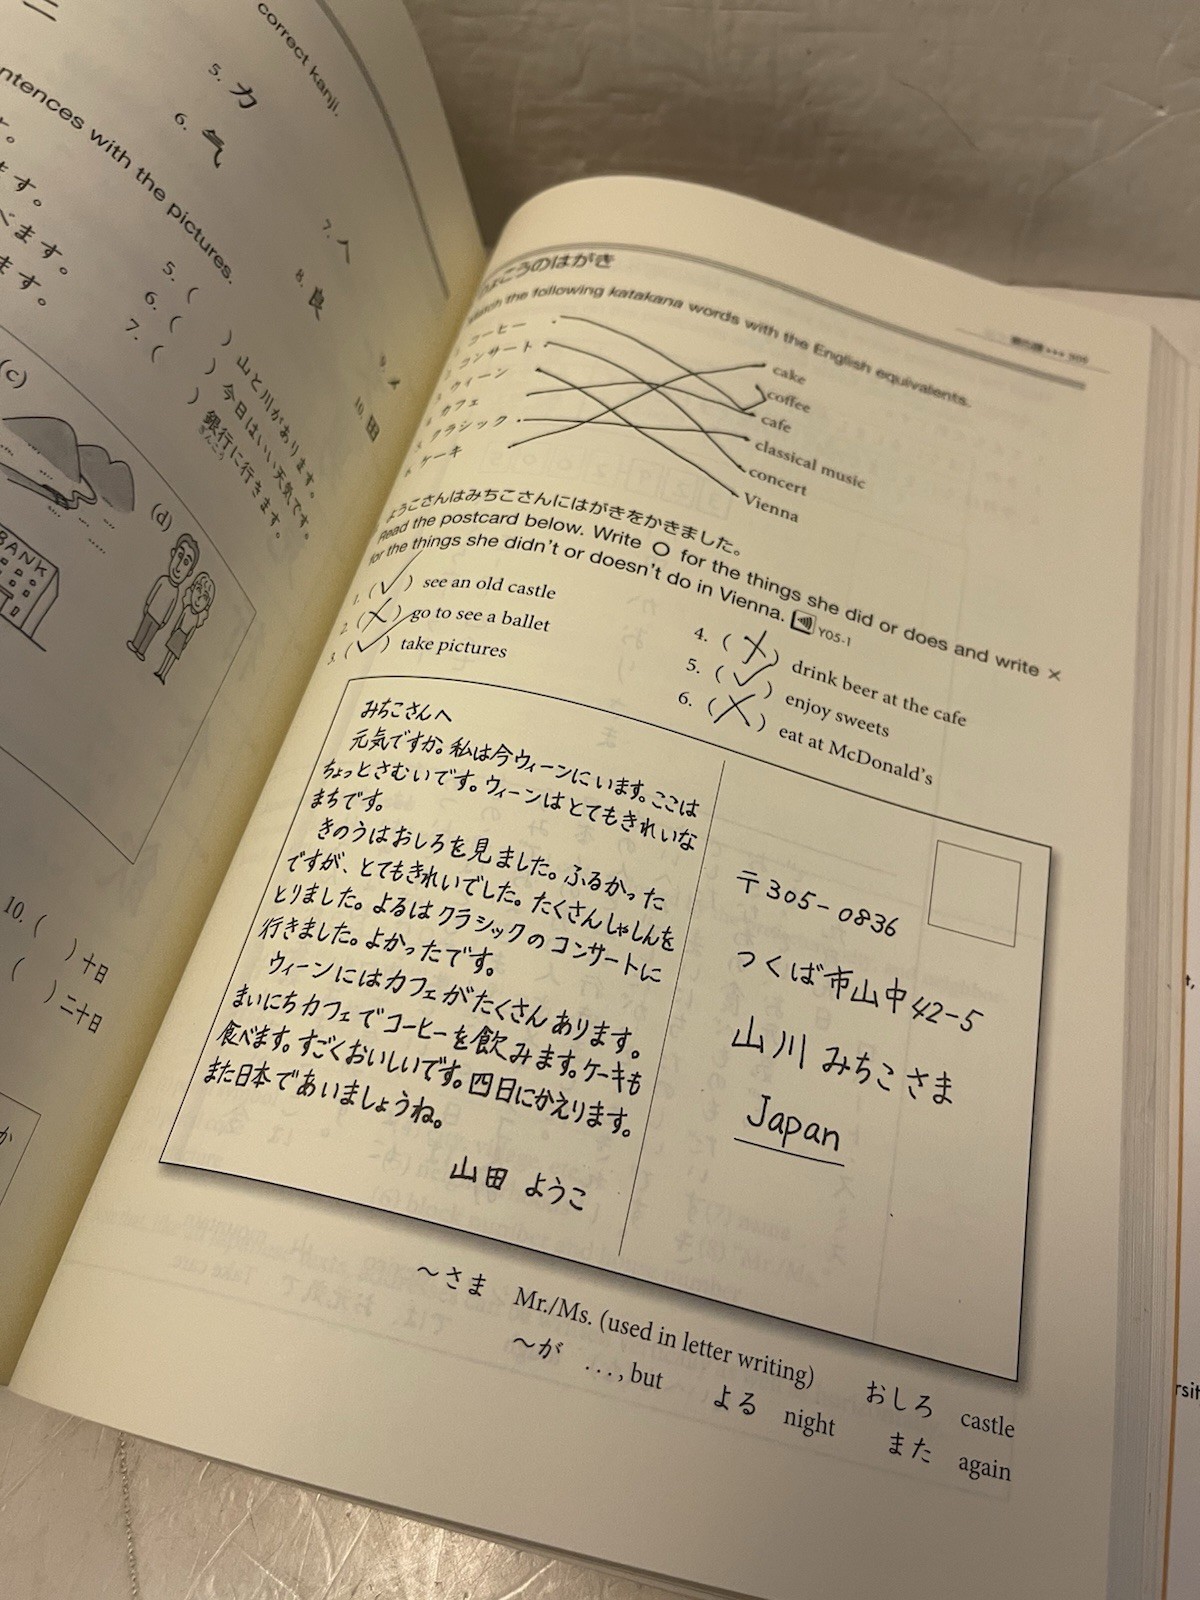 correct kanji.
5. 力
6. 气
7. 人
8. 良
10. 田
ntences with the pictures.
す。
ます。
べます。
ます。
5. ( ) 山と川があります。
6. ( ) 今日はいい天気です。
7. ( ) 銀行に行きます。
ぎんこう
(c)
(d)
BANK
10. ( ) 十日
( ) 二十日
か
ようこうのはがき
Match the following katakana words with the English equivalents.
コーヒー
コンサート
ウィーン
カフェ
クラシック
ケーキ
cake
coffee
cafe
classical music
concert
Vienna
ようこさんはみちこさんにはがきをかきました。
Read the postcard below. Write ○ for the things she did or does and write ×
for the things she didn't or doesn't do in Vienna. Y05-1
1. (✓) see an old castle
2. (×) go to see a ballet
3. (✓) take pictures
4. (×) drink beer at the cafe
5. (✓) enjoy sweets
6. (×) eat at McDonald's
みちこさんへ
元気ですか。私は今ウィーンにいます。ここは
ちょっとさむいです。ウィーンはとてもきれいな
まちです。
きのうはおしろを見ました。ふるかった
ですが、とてもきれいでした。たくさんしゃしんを
とりました。よるはクラシックのコンサートに
行きました。よかったです。
ウィーンにはカフェがたくさんあります。
まいにちカフェでコーヒーを飲みます。ケーキも
食べます。すごくおいしいです。四日にかえります。
また日本であいましょうね。
山田 ようこ
〒305-0836
つくば市山中42-5
山川 みちこさま
Japan
～さま Mr./Ms. (used in letter writing) おしろ castle
～が ..., but よる night また again